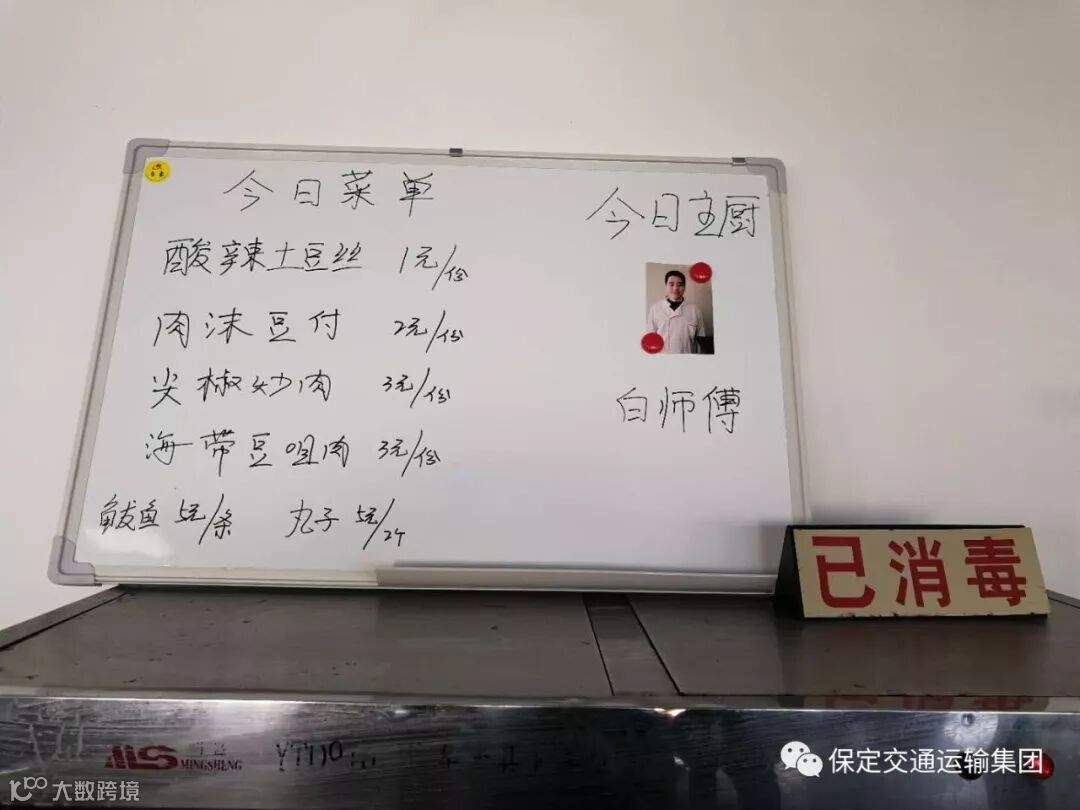 今日菜单
酸辣土豆丝 1元/份
肉沫豆付 2元/份
尖椒炒肉 3元/份
海带豆咀肉 3元/份
鲅鱼 5元/条 丸子 5元/2个
今日主厨
白师傅
已消毒
MS MINGSHENG
保定交通运输集团
大数跨境